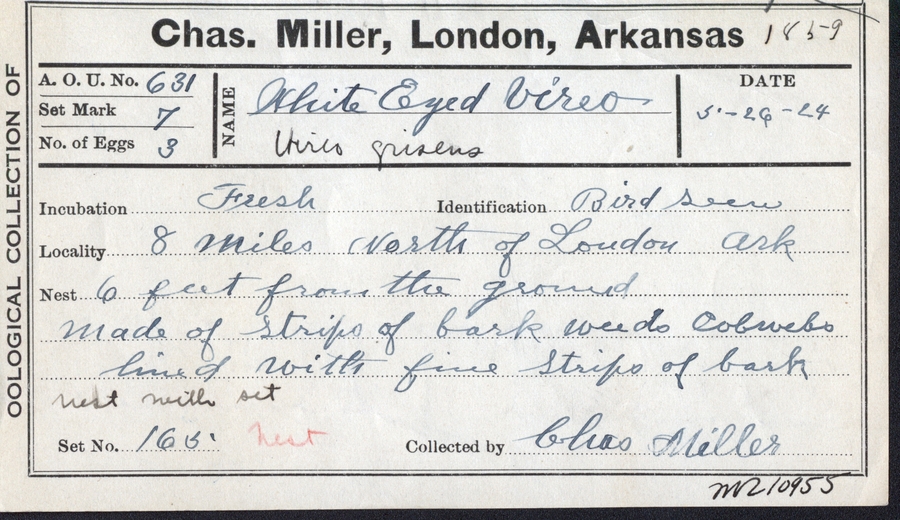 Chas. Miller, London, Arkansas 1859
OOLOGICAL COLLECTION OF
A. O. U. No. 631
Set Mark 7
No. of Eggs 3
NAME White Eyed Vireo
Vireo griseus
DATE
5-26-24
Incubation Fresh Identification Bird seen
Locality 8 miles North of London Ark
Nest 6 feet from the ground
made of strips of bark weeds Cobwebs
lined with fine strips of bark
nest with set
Set No. 165 Nest Collected by Chas Miller